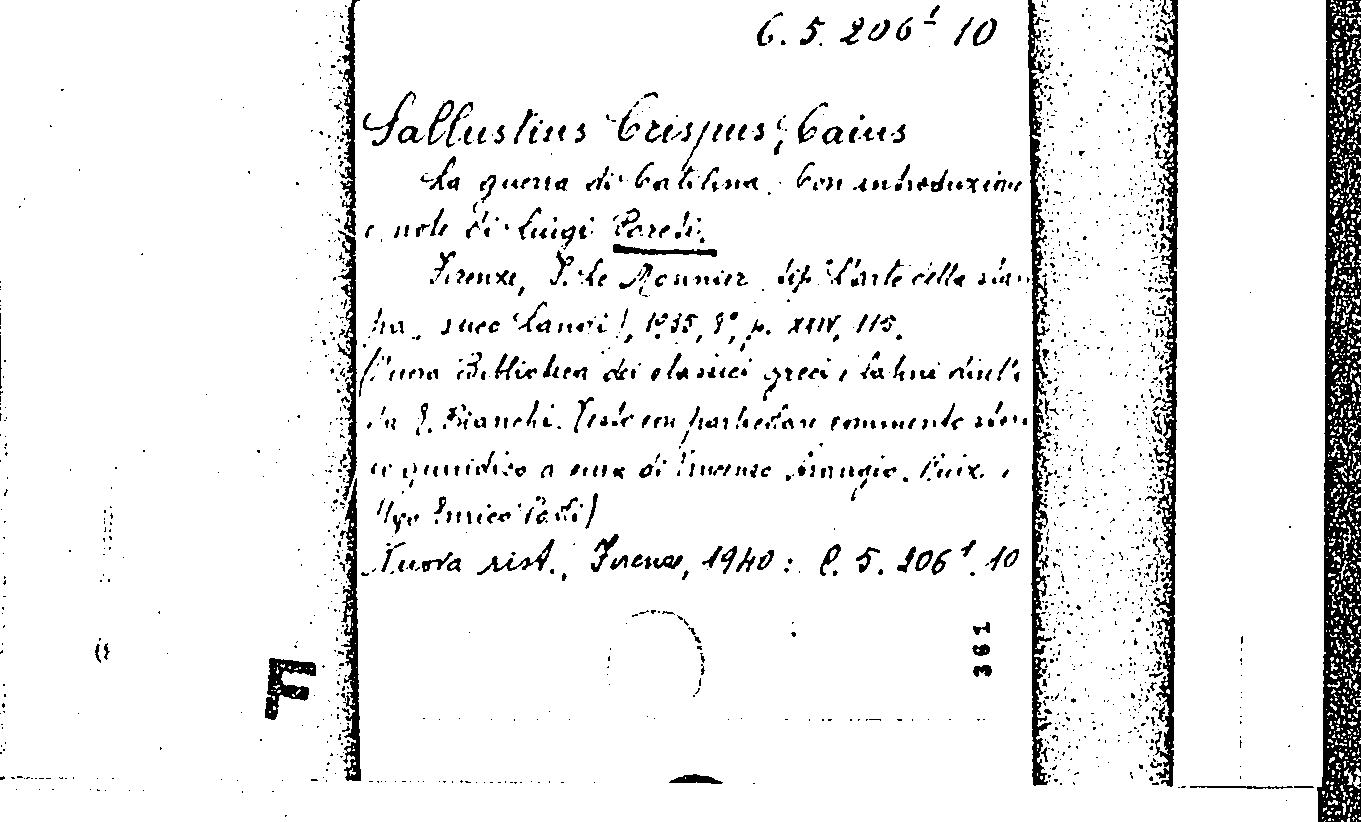 6. 5. 206¹ 10
Sallustius Crispus, Caius
La guerra di Catilina. Con introduzione
e note di Luigi
Firenze, Le Monnier tip. L'arte della stam
pa, succ Landi), 1935, 8°, p. XXIV, 115.
(Nuova Biblioteca dei classici greci e latini
da E. Bianchi. Testo con particolare commento stori
co giuridico a cura di Vincenzo Arangio. Ruiz e
Ugo Enrico Paoli)
Nuova rist., Firenze, 1940: C. 5. 206¹. 10
361
F